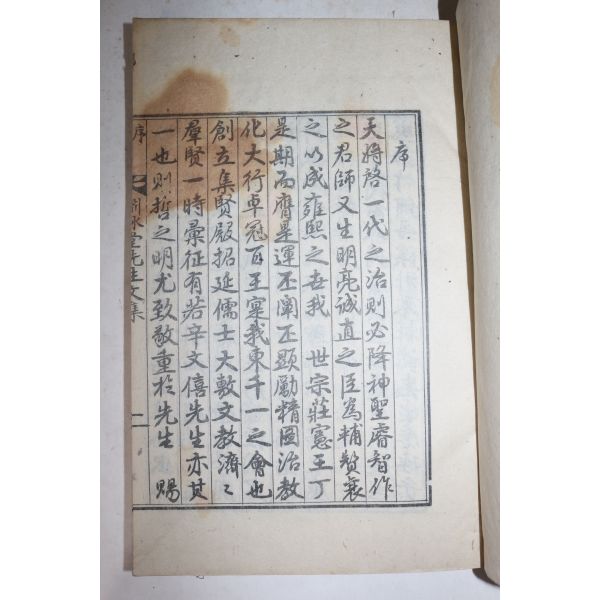 序
天將啓一代之治則必降神聖睿智作
之君師又生明亮誠直之臣爲輔贊襄
之以成雍熙之世我 世宗莊憲王丁
是期而膺是運丕闡丕顯勵精圖治敎
化大行卓冠百王寔我東千一之會也
創立集賢殿招延儒士大敷文敎濟〻
羣賢一時彙征有若辛文僖先生亦其
一也則哲之明尤致敬重於先生 賜
序 氷堂先生文集 一